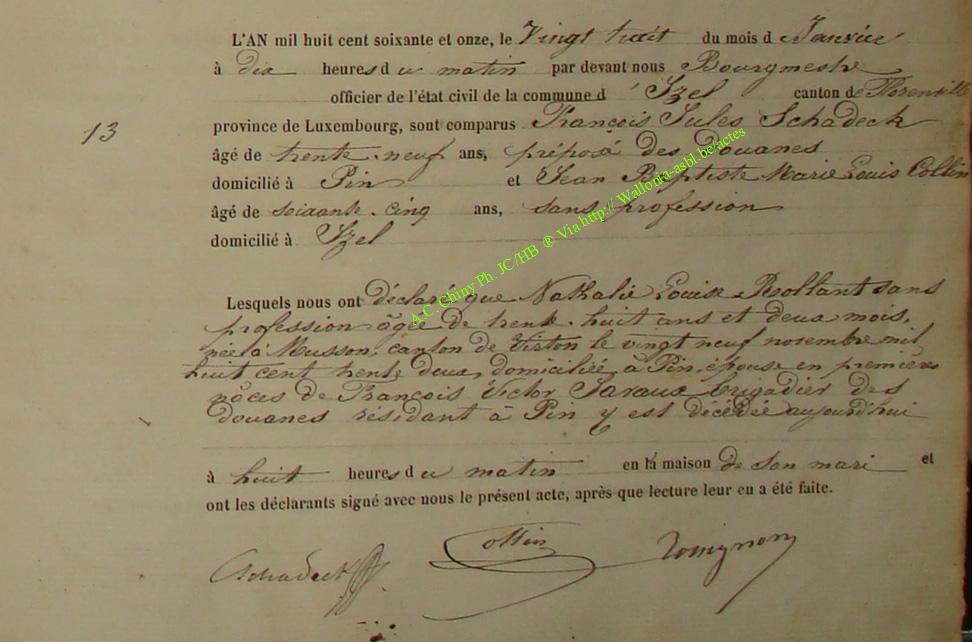 L'AN mil huit cent soixante et onze, le Vingt huit du mois d Janvier
à dix heures du matin par devant nous Bourgmestre
officier de l'état civil de la commune d'Izel canton de Florenville
13
province de Luxembourg, sont comparus François Jules Schadeck
âgé de trente-neuf ans, préposé des Douanes
domicilié à Pin et Jean Baptiste Marie Louis Collin
âgé de soixante-cinq ans, sans profession
domicilié à Izel
Lesquels nous ont déclaré que Nathalie Louise Rollant sans
profession âgée de trente-huit ans et deux mois,
née à Musson, canton de Virton le vingt neuf novembre mil
huit cent trente deux, domiciliée à Pin, épouse en premières
nôces de François Victor Saraux brigadier des
Douanes résidant à Pin y est décédée aujourd'hui
à huit heures du matin en la maison de son mari et
ont les déclarants signé avec nous le présent acte, après que lecture leur en a été faite.
Schadeck Collin
A.C. Chiny Ph. JC/HB ® Via http://Wallonia-asbl.be/actes